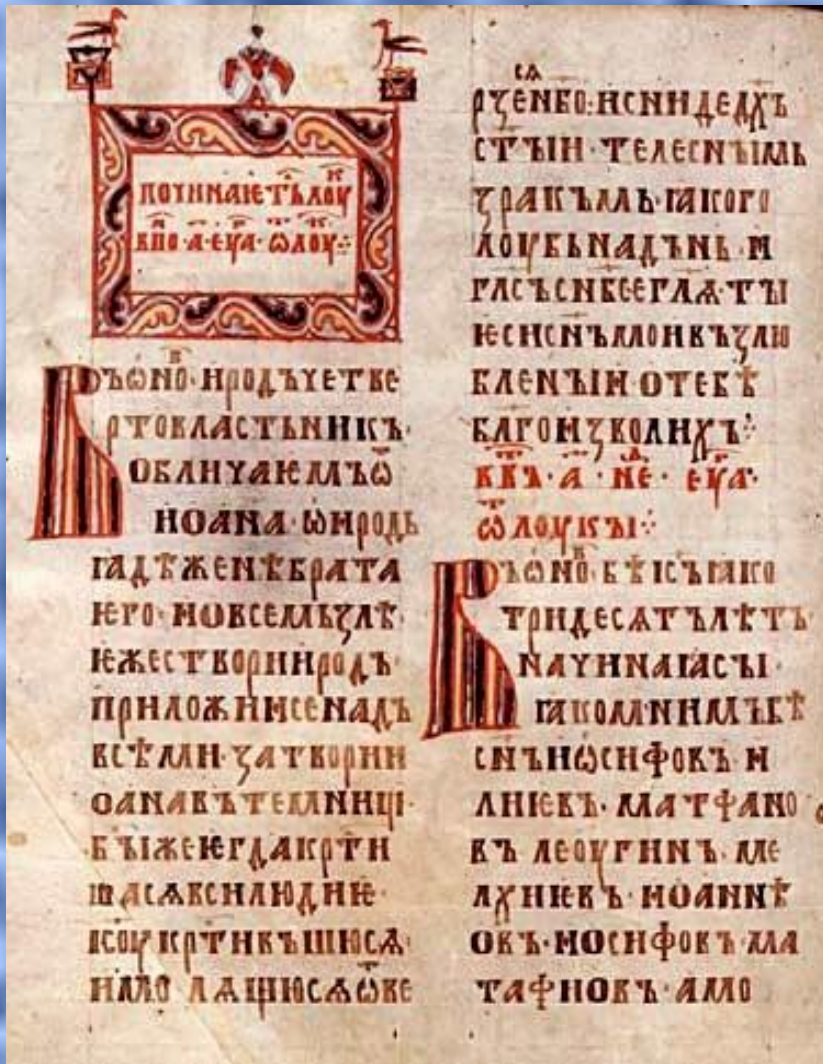 ПОЧИНАѤТЬ ЛОУ
ВПО·А·ЕѴА·ѾЛОУ⁘
ВЪѠНО·ИРОДЪЧЕТВЕ
РТОВЛАСТЬНИКЪ·
ОБЛИЧАѤМЪѾ
ИОАНА·ѠИРОДЬ
ꙖДѢЖЕНѢБРАТА
ѤГО·ИОВСЕМЬЗЛѢ·
ѤЖЕСТВОРИИРОДЪ·
ПРИЛОЖИИСЕНАДЪ
ВСѢМИ·ЗАТВОРИИ
ОАНАВЪТЕМНИЦІ·
БЪІЖЕѤГДАКРТИ
ШАСѦВСИЛЮДИѤ·
ІСОУКРТИВЪШЮСѦ·
ИМОЛѦЩЮСѦѾВЕ
СѦ
РЗЕНБО·ИСНИДЕДХЪ
СТЪІИ·ТЕЛЕСНЪІМЬ
ЗРАКЪМЬ·ꙖКОГО
ЛОУБЬНАДЪНЬ·И
ГЛСЪСНБСЕГЛѦ·ТЪІ
ѤСИСНЪМОИВЪЗЛЮ
БЛЕНЪІИ·ОТЕБѢ
БЛГОИЗВОЛИХЪ⁘
ВВЪ·А·НЕ·ЕѴА·
ѾЛОУКЪІ⁘
ВЪѠНО·БѢІСЪꙖКО
ТРИДЕСѦТЪЛѢТЪ·
НАЧИНАꙖСЪІ
ꙖКОМНИМЪБѢ
СНЪИѠСИФОВЪ·И
ЛИѤВЪ·МАТФАНО
ВЪ ЛЕОУГИИНЪ·МЕ
ЛХИѤВЪ·ИОАННѢ
ОВЪ·ИОСИФОВЪ·МА
ТАФИОВЪ·АМО